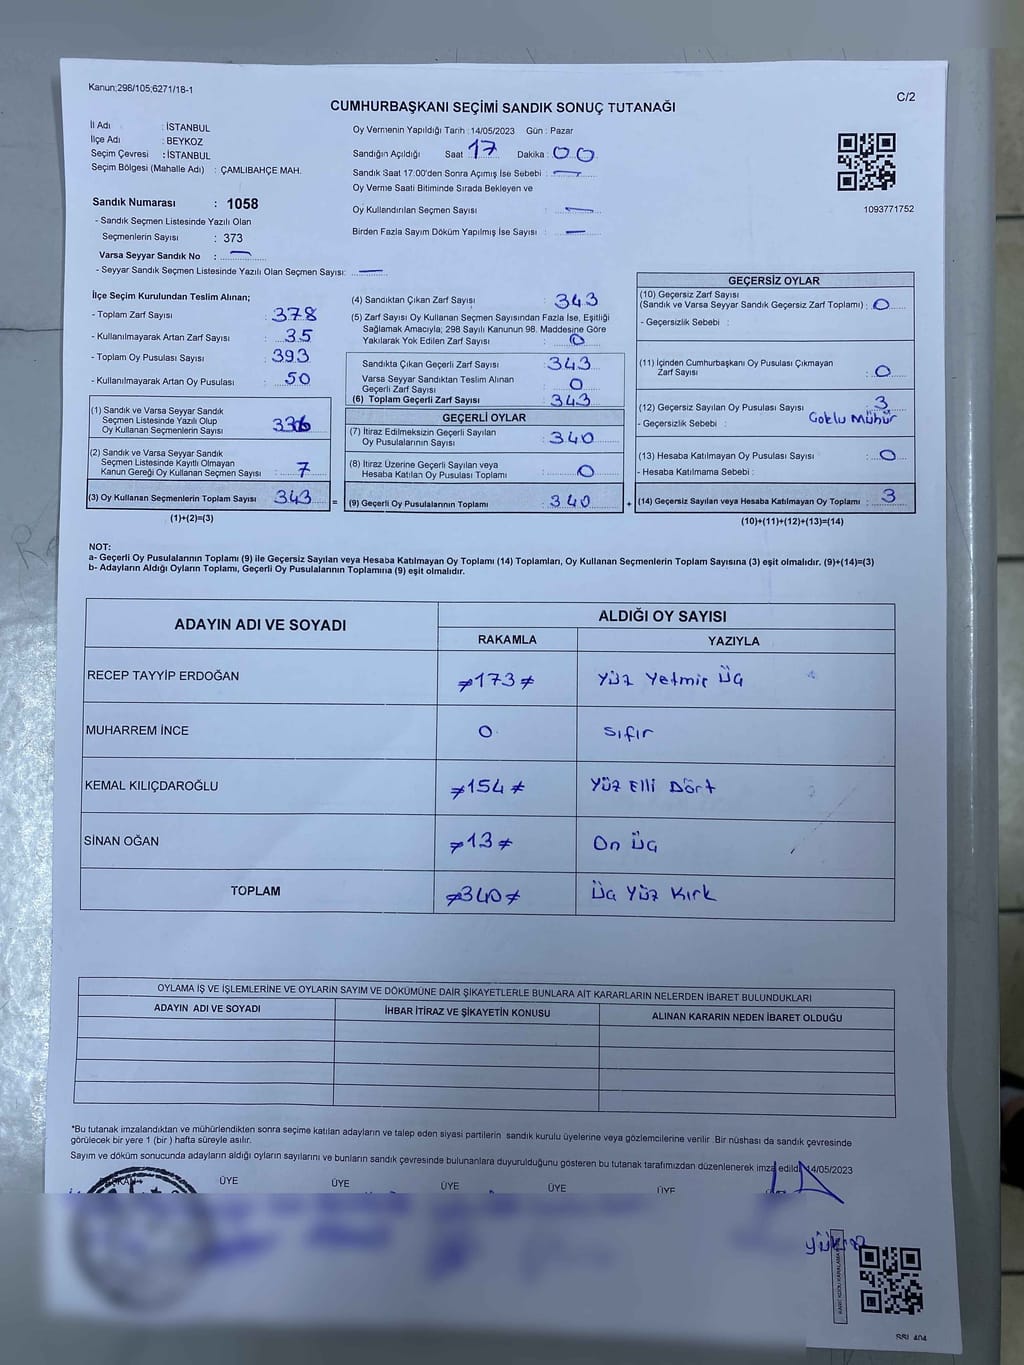 Kanun;298/105;6271/18-1
C/2
CUMHURBAŞKANI SEÇİMİ SANDIK SONUÇ TUTANAĞI
İl Adı : İSTANBUL
İlçe Adı : BEYKOZ
Seçim Çevresi : İSTANBUL
Seçim Bölgesi (Mahalle Adı) : ÇAMLIBAHÇE MAH.
Sandık Numarası : 1058
- Sandık Seçmen Listesinde Yazılı Olan
Seçmenlerin Sayısı : 373
Varsa Seyyar Sandık No : —
- Seyyar Sandık Seçmen Listesinde Yazılı Olan Seçmen Sayısı: —
Oy Vermenin Yapıldığı Tarih : 14/05/2023 Gün : Pazar
Sandığın Açıldığı Saat 17 Dakika : 00
Sandık Saat 17:00'den Sonra Açımış İse Sebebi : —
Oy Verme Saati Bitiminde Sırada Bekleyen ve
Oy Kullandırılan Seçmen Sayısı : —
Birden Fazla Sayım Döküm Yapılmış İse Sayısı : —
1093771752
İlçe Seçim Kurulundan Teslim Alınan;
- Toplam Zarf Sayısı : 378
- Kullanılmayarak Artan Zarf Sayısı : 35
- Toplam Oy Pusulası Sayısı : 393
- Kullanılmayarak Artan Oy Pusulası : 50
(1) Sandık ve Varsa Seyyar Sandık
Seçmen Listesinde Yazılı Olup
Oy Kullanan Seçmenlerin Sayısı : 336
(2) Sandık ve Varsa Seyyar Sandık
Seçmen Listesinde Kayıtlı Olmayan
Kanun Gereği Oy Kullanan Seçmen Sayısı : 7
(3) Oy Kullanan Seçmenlerin Toplam Sayısı : 343 =
(1)+(2)=(3)
(4) Sandıktan Çıkan Zarf Sayısı : 343
(5) Zarf Sayısı Oy Kullanan Seçmen Sayısından Fazla İse, Eşitliği
Sağlamak Amacıyla; 298 Sayılı Kanunun 98. Maddesine Göre
Yakılarak Yok Edilen Zarf Sayısı : 0
Sandıkta Çıkan Geçerli Zarf Sayısı : 343
Varsa Seyyar Sandıktan Teslim Alınan
Geçerli Zarf Sayısı : 0
(6) Toplam Geçerli Zarf Sayısı : 343
GEÇERLİ OYLAR
(7) İtiraz Edilmeksizin Geçerli Sayılan
Oy Pusulalarının Sayısı : 340
(8) İtiraz Üzerine Geçerli Sayılan veya
Hesaba Katılan Oy Pusulası Toplamı : 0
(9) Geçerli Oy Pusulalarının Toplamı : 340 +
GEÇERSİZ OYLAR
(10) Geçersiz Zarf Sayısı
(Sandık ve Varsa Seyyar Sandık Geçersiz Zarf Toplamı) : 0
- Geçersizlik Sebebi :
(11) İçinden Cumhurbaşkanı Oy Pusulası Çıkmayan
Zarf Sayısı : 0
(12) Geçersiz Sayılan Oy Pusulası Sayısı : 3
- Geçersizlik Sebebi : Çoklu Mühür
(13) Hesaba Katılmayan Oy Pusulası Sayısı : 0
- Hesaba Katılmama Sebebi :
(14) Geçersiz Sayılan veya Hesaba Katılmayan Oy Toplamı : 3
(10)+(11)+(12)+(13)=(14)
NOT:
a- Geçerli Oy Pusulalarının Toplamı (9) ile Geçersiz Sayılan veya Hesaba Katılmayan Oy Toplamı (14) Toplamları, Oy Kullanan Seçmenlerin Toplam Sayısına (3) eşit olmalıdır. (9)+(14)=(3)
b- Adayların Aldığı Oyların Toplamı, Geçerli Oy Pusulalarının Toplamına (9) eşit olmalıdır.
ADAYIN ADI VE SOYADI
ALDIĞI OY SAYISI
RAKAMLA YAZIYLA
RECEP TAYYİP ERDOĞAN ≠173≠ Yüz Yetmiş Üç
MUHARREM İNCE 0 Sıfır
KEMAL KILIÇDAROĞLU ≠154≠ Yüz Elli Dört
SİNAN OĞAN ≠13≠ On Üç
TOPLAM ≠340≠ Üç Yüz Kırk
OYLAMA İŞ VE İŞLEMLERİNE VE OYLARIN SAYIM VE DÖKÜMÜNE DAİR ŞİKAYETLERLE BUNLARA AİT KARARLARIN NELERDEN İBARET BULUNDUKLARI
ADAYIN ADI VE SOYADI İHBAR İTİRAZ VE ŞİKAYETİN KONUSU ALINAN KARARIN NEDEN İBARET OLDUĞU
*Bu tutanak imzalandıktan ve mühürlendikten sonra seçime katılan adayların ve talep eden siyasi partilerin sandık kurulu üyelerine veya gözlemcilerine verilir. Bir nüshası da sandık çevresinde
görülecek bir yere 1 (bir ) hafta süreyle asılır.
Sayım ve döküm sonucunda adayların aldığı oyların sayılarını ve bunların sandık çevresinde bulunanlara duyurulduğunu gösteren bu tutanak tarafımızdan düzenlenerek imza edildi. 14/05/2023
BAŞKAN ÜYE ÜYE ÜYE ÜYE ÜYE